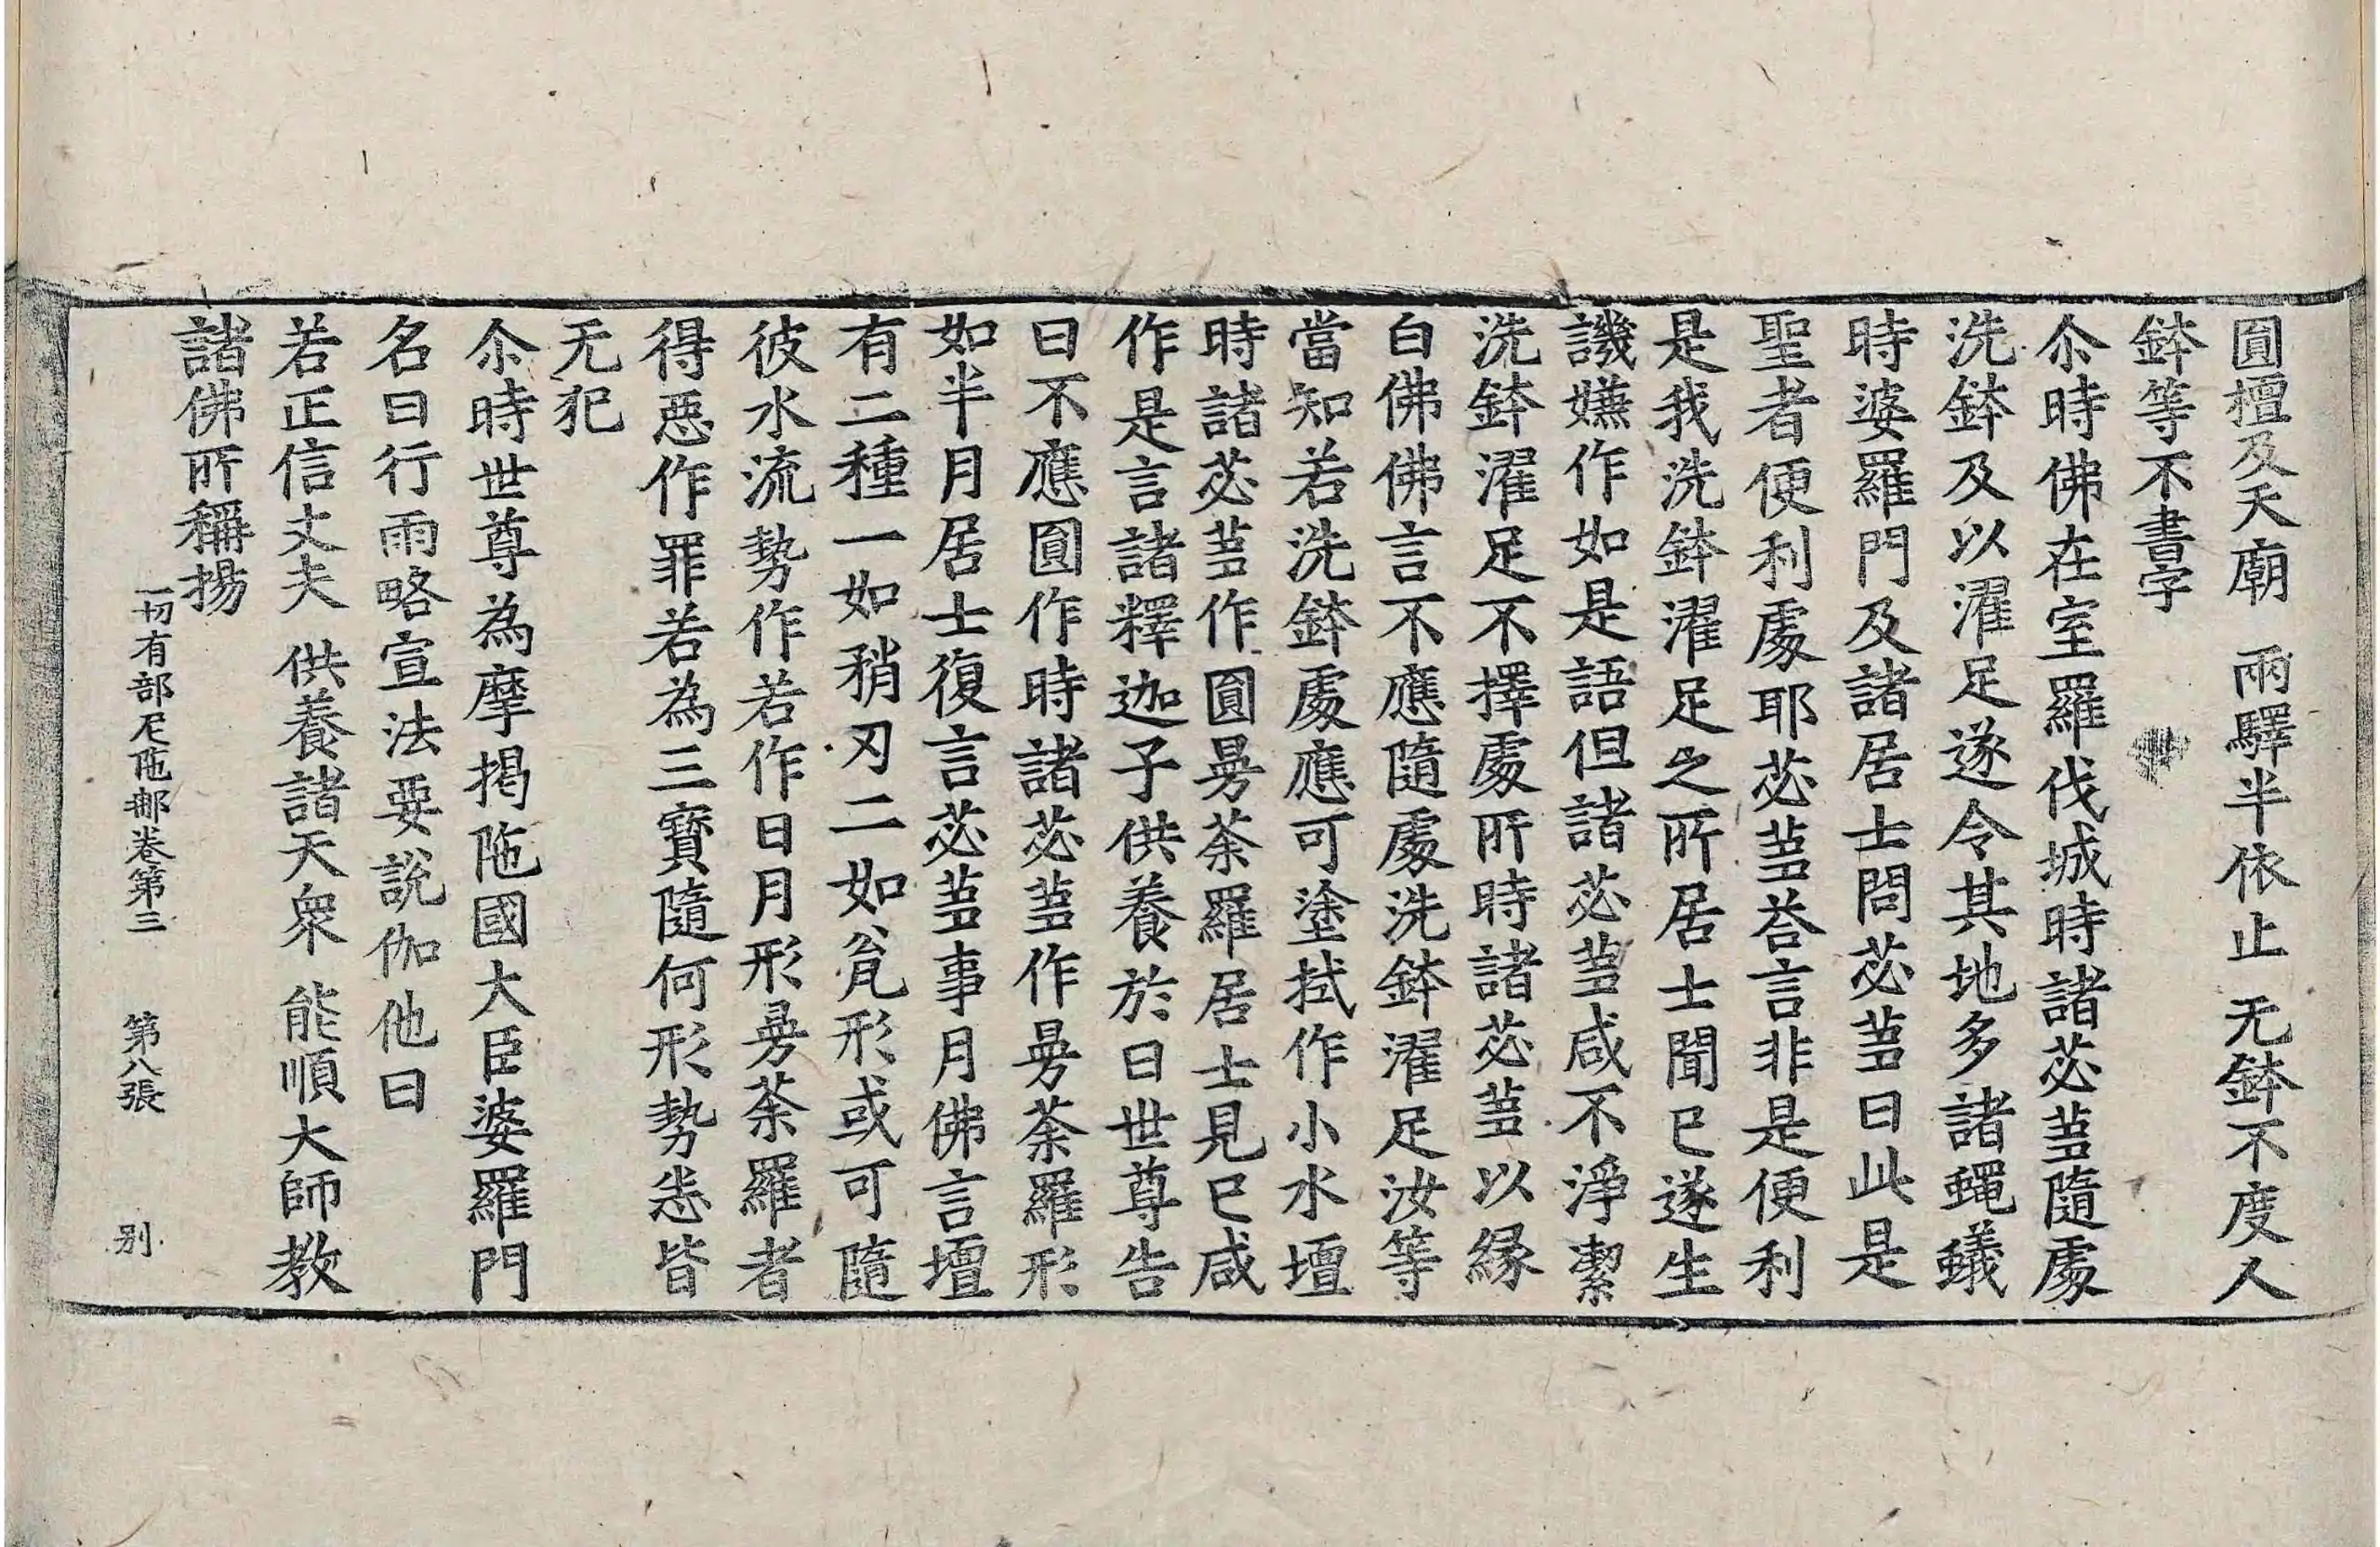 圎檀及天廟　兩驛半依止　无鉢不度人
鉢等不書字
尒時佛在室羅伐城時諸苾蒭隨處
洗鉢及以濯足遂令其地多諸蠅蟻
時婆羅門及諸居士問苾蒭曰此是
聖者便利處耶苾蒭荅言非是便利
是我洗鉢濯足之所居士聞已遂生
譏嫌作如是語但諸苾蒭咸不淨潔
洗鉢濯足不擇處所時諸苾蒭以緣
白佛佛言不應隨處洗鉢濯足汝等
當知若洗鉢處應可塗拭作小水壇
時諸苾蒭作圎曼荼羅居士見已咸
作是言諸釋迦子供養於日世尊告
曰不應圎作時諸苾蒭作曼荼羅形
如半月居士復言苾蒭事月佛言壇
有二種一如矟刃二如瓮形或可隨
彼水流勢作若作日月形曼荼羅者
得惡作罪若為三寶隨何形勢悉皆
无犯
尒時世尊為摩揭陁國大臣婆羅門
名曰行雨略宣法要說伽他曰
若正信丈夫　供養諸天衆　能順大師教
諸佛所稱揚
一切有部尼陁那卷第三　第八張　別